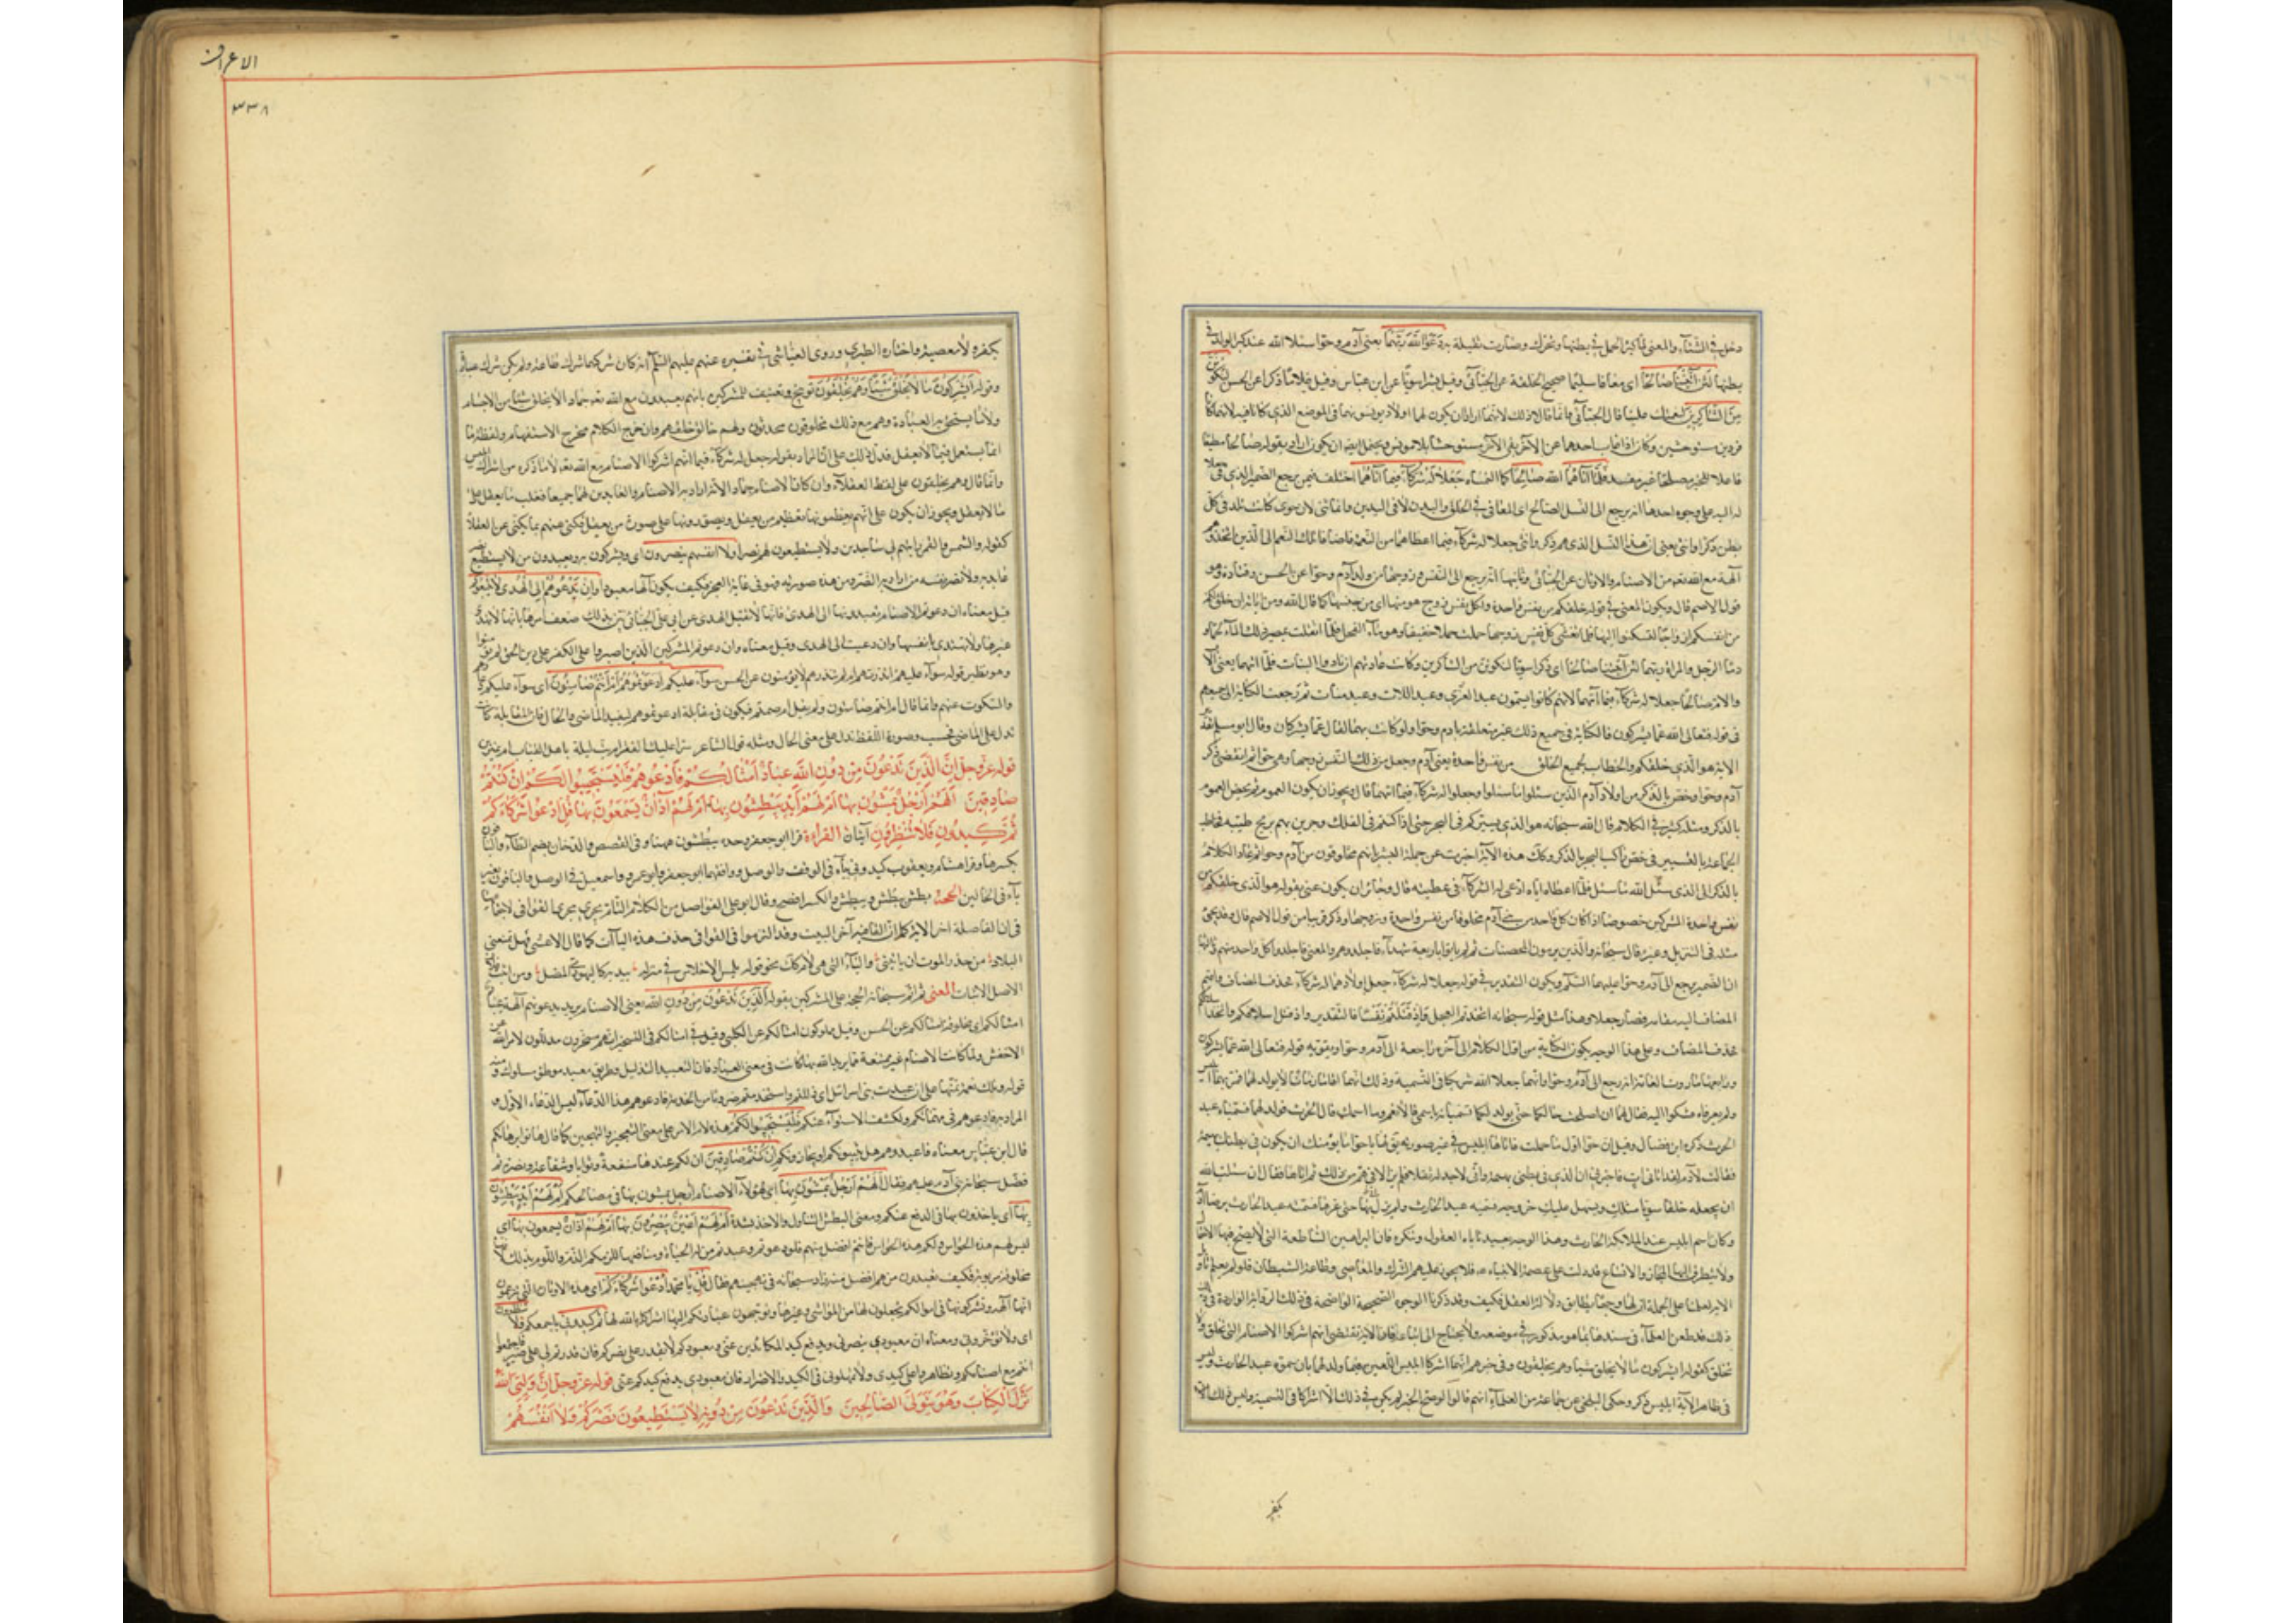 دخل في الشتاء والمعنى لما كبر الحمل في بطنها وتحرك وصارت ثقيلة به دَعَوَا اللَّهَ رَبَّهُمَا يعنى آدم وحوا سئلا الله عند كبر الولد في
بطنها لَئِنْ آتَيْتَنَا صَالِحًا اى معافا سليما صحيح الخلقة عن الجبائى وقيل بشرا سويا عن ابن عباس وقيل غلاما ذكرا عن الحسن لَنَكُونَنَّ
مِنَ الشَّاكِرِينَ لنعمتك علينا قال الجبائى وانما قالا ذلك لانهما ارادا ان يكون لهما اولاد يونسونهما في الموضع الذي كانا فيه لانهما كانا
فردين مستوحشين وكان اذا غاب احدهما عن الآخر بقى الآخر مستوحشا بلا مونس ويحتمل ايضا ان يكون اراد بقوله صالحا مطيعا
فاعلا للخير مصلحا غير مفسد فَلَمَّا آتَاهُمَا الله صَالِحًا كما التمساه جَعَلَا لَهُ شُرَكَاءَ فِيمَا آتَاهُمَا اختلف فيمن يرجع الضمير الذي في جعلا
له اليه على وجوه احدها انه يرجع الى النسل الصالح اى المعافى في الخلق والبدن لا في الدين وانما ثنى لان حوى كانت تلد في كل
بطن ذكرا وانثى يعنى ان هذا النسل الذى هم ذكر وانثى جعلا له شركاء فيما اعطاهما من النعمة فاضافا تلك النعم الى الذين اتخذوهم
آلهة مع الله تعه من الاصنام والاوثان عن الجبائى وثانيها انه يرجع الى النفس وزوجها من ولد آدم وحوا عن الحسن وقتادة وهو
قول الاصم قال ويكون المعنى في قوله خلقكم من نفس واحدة ولكل نفس زوج هو منها اى من جنسها كما قال الله ومن آياته ان خلق لكم
من انفسكم ازواجا لتسكنوا اليها فلما تغشى كل نفس زوجها حملت حملا خفيفا وهو ماء الفحل فلما اثقلت بمصير ذلك الماء لحما و
دما الرجل والمراة ربهما لئن آتيتنا صالحا اى ذكرا سويا لنكونن من الشاكرين وكانت عادتهم ان يئدوا البنات فلما اتيهما يعنى الاب
والام صالحا جعلا له شركاء فيما آتيهما لانهم كانوا يسمون عبد العزى وعبد اللات وعبد منات ثم رجعت الكناية الى جميعهم
فى قوله فتعالى الله عما يشركون فالكناية في جميع ذلك غير متعلقة بادم وحوا ولو كانت بهما لقال عما يشركان وقال ابو مسلم تقدير
الاية هو الذي خلقكم والخطاب لجميع الخلق من نفس واحدة يعنى آدم وجعل من ذلك النفس زوجها وهى حوا ثم انقضى ذكر
آدم وحوا وخص بالذكر من اولاد آدم الذين سئلوا ما سئلوا وجعلوا له شركاء فيما اتيهما قال ويجوز ان يكون العموم ثم يخص العموم
بالذكر ومثله كثير في الكلام قال الله سبحانه هو الذي يسيركم فى البحر حتى اذا كنتم فى الفلك وجرين بهم بريح طيبة فخاطب
الجماعة بالتسيير ثم خص راكب البحر بالذكر وكك هذه الآية اخبرت عن جملة البشر انهم مخلوقون من آدم وحوا ثم عاد الكلام
بالذكر الى الذى سئل الله ما سئل فلما اعطاه اياه ادعى له الشركاء في عطيته قال وجائز ان يكون عنى بقوله هو الذى خلقكم من
نفس واحدة المشركين خصوصا اذ كان كل واحد من بنى آدم مخلوقا من نفس واحدة وزوجها وذكر قريبا من قول الاصم قال وقد يجئ
مثله فى التنزيل وغيره قال سبحانه والذين يرمون المحصنات ثم لم ياتوا باربعة شهداء فاجلدوهم والمعنى فاجلدوا كل واحد منهم وثالثها
ان الضمير يرجع الى آدم وحوا عليهما السلم ويكون التقدير في قوله جعلا له شركاء جعل اولادهما له شركاء فحذف المضاف واقيم
المضاف اليه مقامه فصار جعلا وهذا مثل قوله سبحانه اتخذتم العجل وَإِذْ قَتَلْتُمْ نَفْسًا فالتقدير واذ قتل اسلافكم واتخذ اسلافكم
فحذف المضاف وعلى هذا الوجه يكون الكناية من اول الكلام الى آخره راجعة الى آدم وحوا ويقويه قوله فتعالى الله عما يشركون
ورابعها ما روت العامة انه رجع الى آدم وحوا وانهما جعلا الله شريكا فى التسمية وذلك انهما اقاما زمانا لا يولد لهما فمر بهما ابليس
ولم يعرفاه فشكوا اليه فقال لهما ان اصلحت حالكما حتى يولد لكما تسميانه باسمى قالا نعم وما اسمك قال الحرث فولد لهما فسمياه عبد
الحرث ذكره ابن فضال وقيل ان حوا اول ما حملت فاتاها ابليس في غير صورته فقال لها يا حوا ما يومنك ان يكون في بطنك بهيمة
فقالت لآدم لقد اتانى آت فاخبرنى ان الذي في بطنى بهيمة وانى لاجد له ثقلا فلم يزالا في هم من ذلك ثم اتاها فقال ان سئلت الله
ان يجعله خلقا سويا مثلك ويسهل عليك خروجه فسميه عبد الحارث ولم يزل بها حتى غرها فسمته عبد الحارث برضا آدم
وكان اسم ابليس عند الملائكة الحارث وهذا الوجه بعيد تاباه العقول وتنكره فان البراهين الساطعة التى لا يصح فيها الاحتمال
ولا يتطرق اليها المجاز والاتساع قد دلت على عصمة الانبياء ع فلا يجوز عليهم الشرك والمعاصى وطاعة الشيطان فلو لم يعلم تاويل
الاية لعلمنا على الجملة ان لها وجها يطابق دلالة العقل فكيف وقد ذكرنا الوجوه الصحيحة الواضحة في ذلك الروآية الواردة في
ذلك قد طعن العلماء فى سندها بما هو مذكور في موضعه ولا يحتاج الى اثباته فان الآية تقتضى انهم اشركوا الاصنام التى تخلق ولا
تخلق كقوله ايشركون ما لا يخلق شيئا وهم يخلقون وفى خبرهم انهما اشركا ابليس اللعين فيما ولد لهما بان سموه عبد الحارث وليس
فى ظاهر الآية ابليس ذكر وحكى البلخى عن جماعة من العلماء انهم قالوا لو صح الخبر لم يكن في ذلك الا اشراكا فى التسمية وليس ذلك
بكفر
الاعراف
۳۳۸
بكفر ولا معصية واختاره الطبرى وروى العياشى في تفسيره عنهم عليهم السلم انه كان شركهما شرك طاعة ولم يكن شرك عبادة
وقوله أَيُشْرِكُونَ مَا لَا يَخْلُقُ شَيْئًا وَهُمْ يُخْلَقُونَ توبيخ وتعنيف للمشركين بانهم يعبدون مع الله تعه جمادا لا يخلق شيئا من الاجسام
ولا ما يستحق به العبادة وهم مع ذلك مخلوقون محدثون ولهم خالق خلقهم وان خرج الكلام مخرج الاستفهام ولفظة ما
انما يستعمل فيما لا يعقل فدل ذلك على ان المراد بقوله جعل له شركاء فيما اتيهم اشركوا الاصنام مع الله تعه لا ما ذكره من اشراك ابليس
وانما قال وهم يخلقون على لفظ العقلاء وان كانت الاصنام جمادا لانه اراد به الاصنام والعابدين لها جميعا فغلب ما يعقل على
ما لا يعقل ويجوز ان يكون على انهم يعظمونها تعظيم من يعقل ويصورونها على صورة من يعقل فكنى عنهم كما يكنى عن العقلاء
كقوله والشمس والقمر رايتهم لى ساجدين ولا يستطيعون لهم نصرا ولا انفسهم ينصرون اى ويشركون به ويعبدون من لا يستطيع نصر
عابديه ولا نصر نفسه من اراد به الضر ومن هذه صورته فهو فى غاية العجز فكيف يكون آلها معبودا وَإِنْ تَدْعُوهُمْ إِلَى الْهُدَى لَا يَتَّبِعُوكُمْ
قيل معناه ان دعوتم الاصنام يعبدونها الى الهدى فانها لا تقبل الهدى عن ابى على الجبائى بين بذلك ضعف امرها بانها لا تهدى
غيرها ولا تهتدى بانفسها وان دعيت الى الهدى وقيل معناه وان دعوتم المشركين الذين اصروا على الكفر على دين الحق لم يؤمنوا
وهو نظير قوله سوآء عليهم ءانذرتهم ام لم تنذرهم لا يؤمنون عن الحسن سوآء عليكم أَدَعَوْتُمُوهُمْ أَمْ أَنْتُمْ صَامِتُونَ اى سوآء عليكم دعاؤهم
والسكوت عنهم وانما قال ام انتم صامتون ولم يقل ام صمتم فيكون فى مقابلة ادعوتموهم ليفيد الماضى والحال فان المقابلة كانت
تدل على الماضى فحسب وصورة اللفظ تدل على معنى الحال ومثله قول الشاعر سواء عليك الفقر ام بت ليلة باهل القباب من نمير بن
قوله عز وجل إِنَّ الَّذِينَ تَدْعُونَ مِنْ دُونِ اللَّهِ عِبَادٌ أَمْثَالُكُمْ فَادْعُوهُمْ فَلْيَسْتَجِيبُوا لَكُمْ إِنْ كُنْتُمْ
صَادِقِينَ أَلَهُمْ أَرْجُلٌ يَمْشُونَ بِهَا أَمْ لَهُمْ أَيْدٍ يَبْطِشُونَ بِهَا أَمْ لَهُمْ آذَانٌ يَسْمَعُونَ بِهَا قُلِ ادْعُوا شُرَكَاءَكُمْ
ثُمَّ كِيدُونِ فَلَا تُنْظِرُونِ آيتان القراءة قرا ابو جعفر وحده يبطشون ههنا وفى القصص والدخان بضم الطاء والباقون
بكسرها وقرا هشام ويعقوب كيدونى بياء في الوقف والوصل ووافقهما ابو جعفر وابو عمرو واسمعيل في الوصل والباقون بغير
ياء فى الحالين الحجة بطش يبطش ويبطش والكسر افصح وقال ابو على الفواصل من الكلام التام تجرى مجرى القوافى لاجتماعهما
فى ان الفاصلة اخر الآية كما ان القافية آخر البيت وقد الزموا فى القوافى حذف هذه الياآت كما قال الاعشى فهل يمنعنى
البلاد من حذر الموت ان ياتينى والياء التى هى لام كك نحو قوله يلمس الاحلاس في منزله بيديه كاليهودى المضل ومن اثبت فلان
الاصل الاثبات المعنى ثم اتم سبحانه الحجة على المشركين بقوله الَّذِينَ تَدْعُونَ مِنْ دُونِ الله يعنى الاصنام يريد يدعونهم آلهة عباد
امثالكم اى مخلوقة امثالكم عن الحسن وقيل مملوكون امثالكم عن الكلبى وقيل في امثالكم فى التسخير اى هم مسخرون مذللون لامر الله عن
الاخفش ولما كانت الاصنام غير ممتنعة مما يريد الله بها كانت فى معنى العباد فان التعبيد التذليل وطريق معبد موطؤ مسلوك ومنه
قوله وتلك نعمة تمنها على ان عبدت بنى اسرائيل اى ذللتهم واستخدمتهم ضروبا من الخدمة فادعوهم هذا الدعاء ليس الدعاء الاول و
المراد به فادعوهم فى مهماتكم ولكشف الاسوآء عنكم فَلْيَسْتَجِيبُوا لَكُمْ هذه لام الامر على معنى التعجيز والتهجين كما قال هاتوا برهانكم
قال ابن عباس معناه فاعبدوهم هل يثيبونكم او يجازونكم إِنْ كُنْتُمْ صَادِقِينَ ان لكم عندها منفعة وثوابا وشفاعة ونصرة ثم
فضل سبحانه بنى آدم عليهم فقال أَلَهُمْ أَرْجُلٌ يَمْشُونَ بِهَا اى لهؤلاء الاصنام ارجل يمشون بها فى مصالحكم أَمْ لَهُمْ أَيْدٍ يَبْطِشُونَ
بِهَا اى ياخذون بها فى الدفع عنكم ومعنى البطش التناول والاخذ بشدة أَمْ لَهُمْ أَعْيُنٌ يُبْصِرُونَ بِهَا أَمْ لَهُمْ آذَانٌ يسمعون بها اى
ليس لهم هذه الحواس ولكم هذه الحواس فانتم افضل منهم فلو دعوتم وعبدتم من له الحياة ومنافعها للزمكم الذم واللوم بذلك لانها
مخلوقة مربوبة فكيف تعبدون من هم افضل منه زاد سبحانه فى تهجينهم فقال قُلِ يا محمد ادْعُوا شُرَكَاءَكُمْ اى هذه الاوثان التى تزعمون
انها آلهة وتشركونها فى اموالكم يجعلون لها من المواشى وغيرها وتوجهون عباداتكم اليها اشراكا بالله لها ثُمَّ كِيدُونِ باجمعكم فلا تنظرون
اى ولا تؤخرونى ومعناه ان معبودي ينصرنى ويدفع كيد المكائدين عنى ومعبودكم لا يقدر على نصركم فان قدرتم لى على ضر فاجمعوا
انتم مع اصنامكم وتظاهروا على كيدى ولا تمهلونى فى الكيد والاضرار فان معبودي يدفع كيدكم عنى قوله عز وجل إِنَّ وَلِيِّيَ اللَّهُ
نَزَّلَ الْكِتَابَ وَهُوَ يَتَوَلَّى الصَّالِحِينَ وَالَّذِينَ تَدْعُونَ مِنْ دُونِهِ لَا يَسْتَطِيعُونَ نَصْرَكُمْ وَلَا أَنْفُسَهُمْ